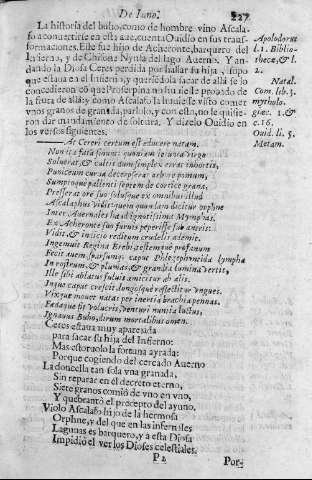 De Iuno.
227
La historia del buho, como de hombre vino Ascala-
fo a conuertirse en esta aue, cuenta Ouidio en sus transf-
formaciones. Este fue hijo de Acheronte, barquero del
Infierno, y de Chriona Nynfa del lago Auerno. Y an-
dando la Diosa Ceres perdida por hallar su hija, supo
que estaua en el Infierno, y queriendola sacar de allà se lo
concedieron cõ que Proserpina no huuiesse prouado de
la fruta de allà: y como Ascalafo la huuiesse visto comer
vnos granos de granada, parlolo, y con esto, no le quisie-
ron dar mandamiento de soltura. Y dizelo Ouidio en
los versos siguientes.
Apolodoro
l.1. Biblio-
thecæ, & l.
2.
Natal.
Com. lib. 3.
mytholo-
giæ. c. 1. &
c. 16.
Ouid. li. 5.
Metam.
At Cereri certum est educere natam.
Non ita fata sinunt: quoniam ieiunia virgo
Soluerat, & cultis dum simplex errat in hortis,
Puniceum curua decerpserat arbore pomum,
Sumptaque pallenti septem de cortice grana,
Presserat ore suo: solusque ex omnibus illud
Ascalaphus vidit: quem quondam dicitur orphne
Inter Auernales haud ignotissima Nymphas,
Ex Acheronte suo furuis peperisse sub antris:
Vidit, & indicio reditum crudelis ademit.
Ingemuit Regina Erebi, testemque profanum
Fecit auem, sparsumq; caput Phlegethontide lympha
In rostrum, & plumas, & grandia lumina vertit,
Ille sibi ablatus fuluis amicitur ab alis,
Inque caput crescit, longosque reflectitur vngues.
Vixque mouet natas per inertia brachia pennas.
Fædaque fit volucris, venturi nuntia luctus,
Ignauus Bubo, dirum mortalibus omen.
Ceres estaua muy aparejada
para sacar su hija del Infierno:
Mas estoruolo la fortuna ayrada:
Porque cogiendo del cercado Auerno
La doncella tan sola vna granada,
Sin reparar en el decreto eterno,
Siete granos comio de vno en vno,
Y quebrantò el precepto del ayuno.
Violo Ascalafo hijo de la hermosa
Orphne, y del que en las infernales
Lagunas es barquero, y a esta Diosa
Impidiò el ver los Dioses celestiales.
P 2
Por-